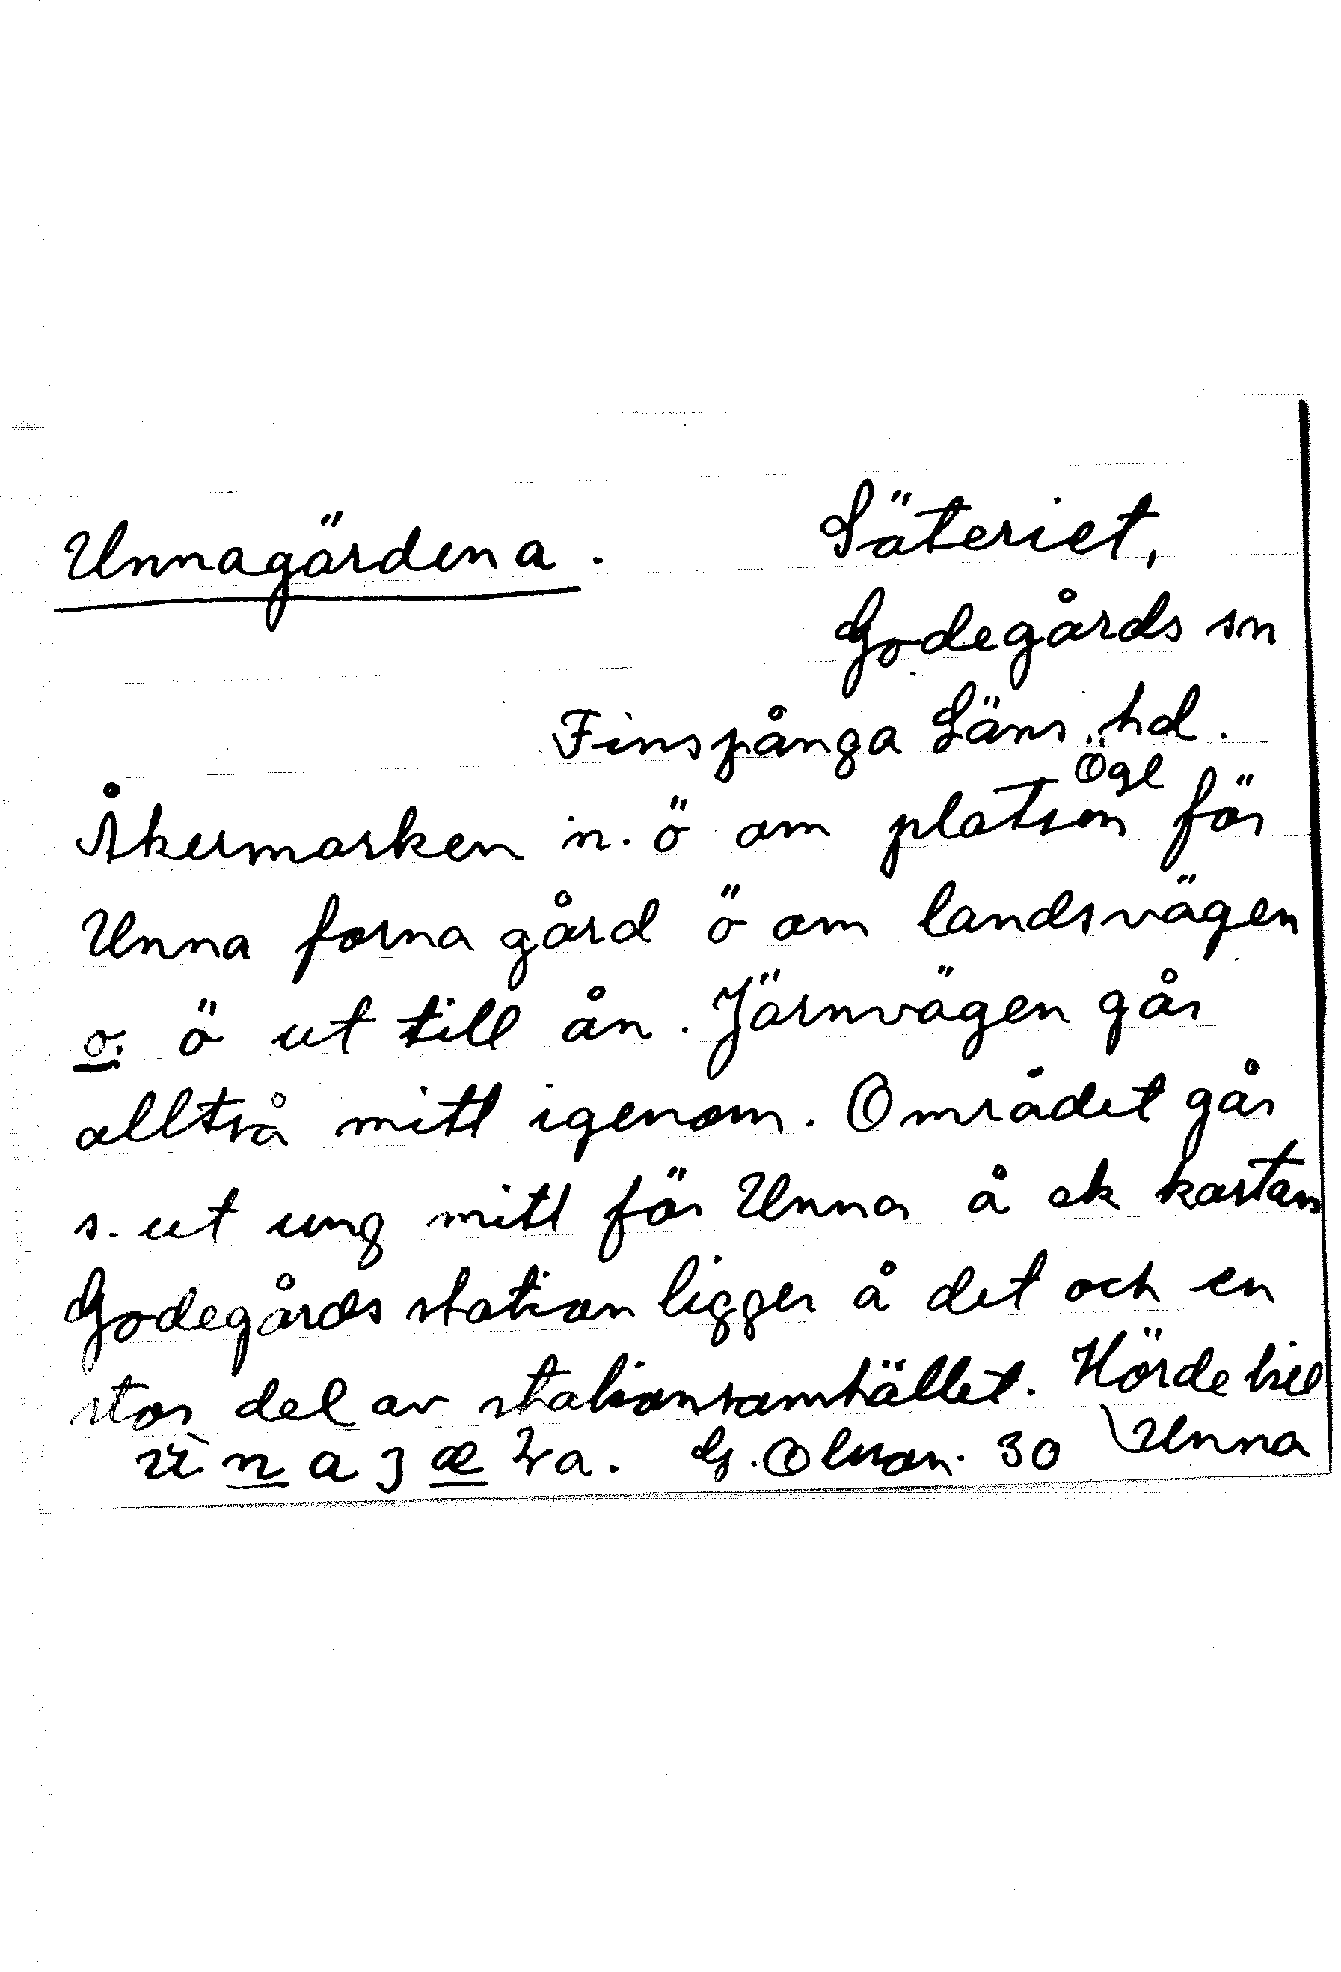 Unnagärdena. Säteriet,
Godegårds sn
Finspånga Läns hd.
Ögl
Åkermarken n. ö om platsen för
Unna forna gård ö om landsvägen
o. ö ut till ån. Järnvägen går
alltså mitt igenom. Området går
s. ut ung mitt för Unna å ek kartan
Godegårds station ligger å det och en
stor del av stationsamhället. Hörde till
Unna
G. Olsson. 30